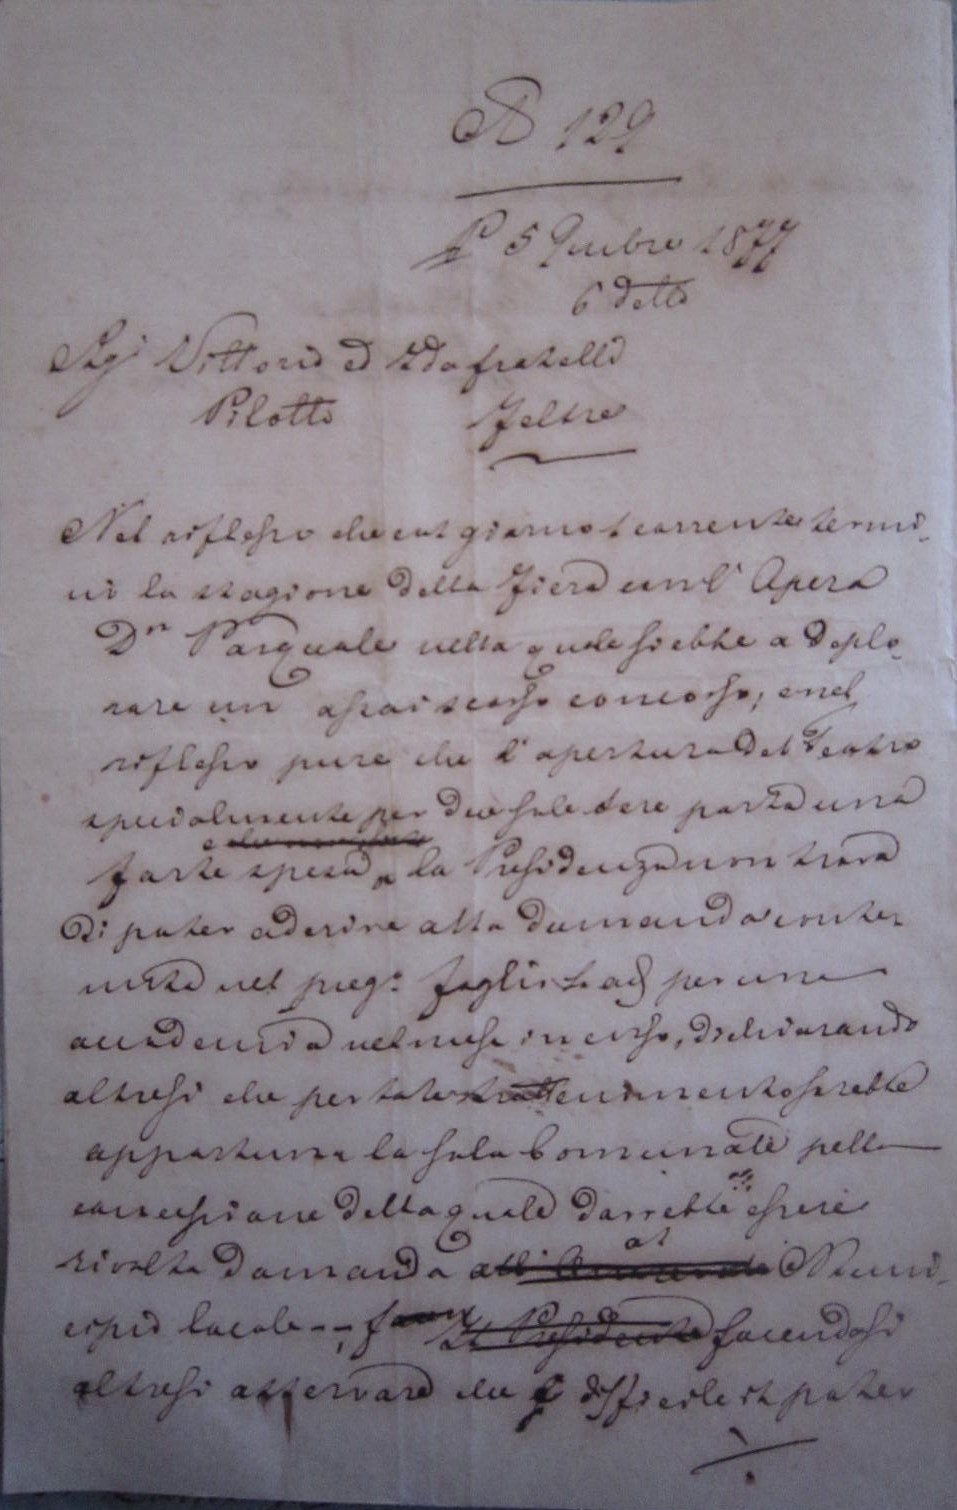 N 129
P 5 9mbre 1877
6 detto
Sigi Vittorio ed Ida fratelli
Pilotto Feltre
Nel riflesso che col giorno 4 corrente termi-
ni la stagione della fiera con l'Opera
Dn Pasquale nella quale si ebbe a deplo-
rare un assai scarso concorso, e nel
riflesso pure che l'apertura del Teatro
specialmente per due sole sere porta una
forte spesa, la Presidenza non trova
di poter aderire alla domanda conte-
nuta nel preg.o foglio 4 ad per una
accademia nel mese in corso, dichiarando
altresi che per tale trattenimento sarebbe
opportuna la sala Comunale pella
concessione della quale dovrebbe essere
rivolta domanda al Muni-
cipio locale -- facendosi
altresi osservare che difficile il poter